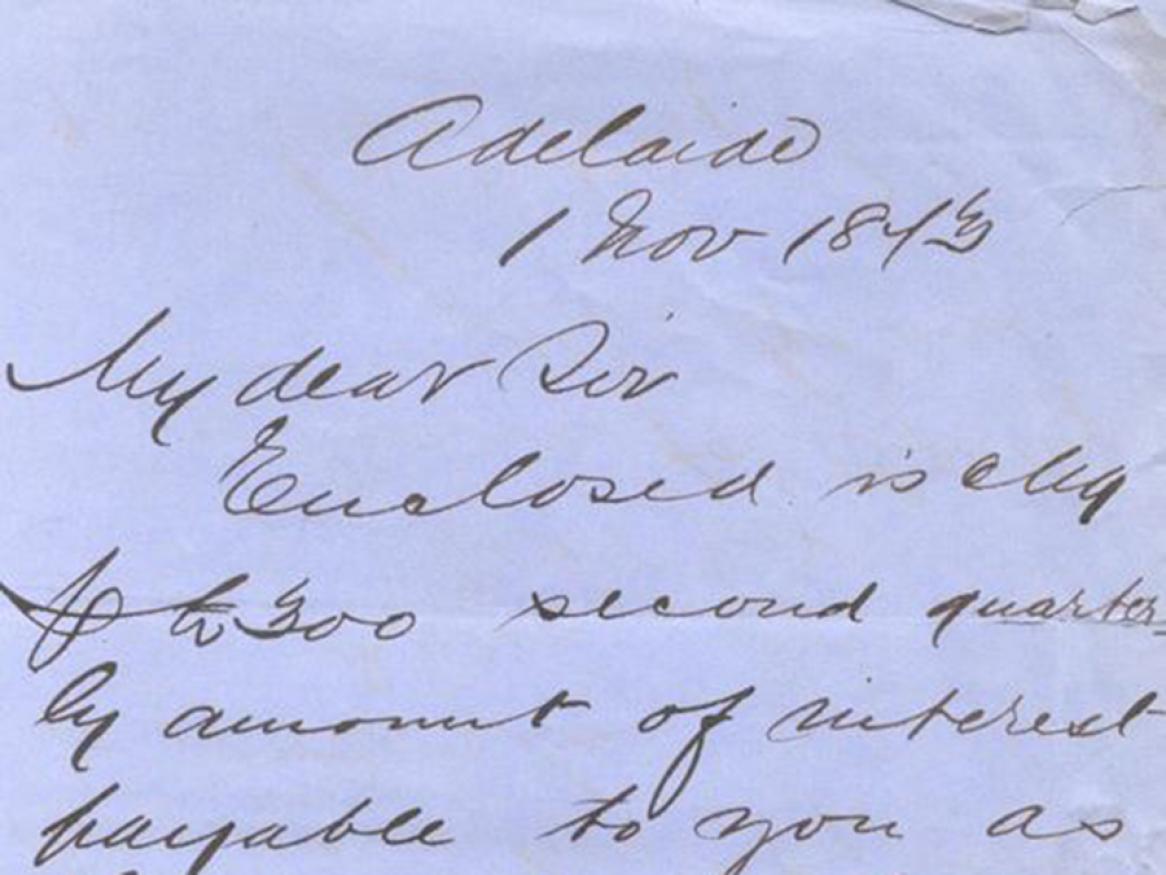 Adelaide
1 Nov 1873
My dear Sir
Enclosed is chq
300 second quarter-
ly amount of interest
payable to you as